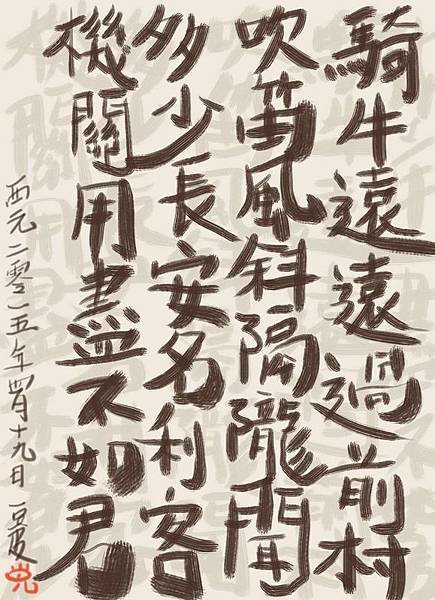 騎牛遠遠過前村
吹笛風斜隔隴聞
多少長安名利客
機關用盡不如君
西元二零二五年四月十九日